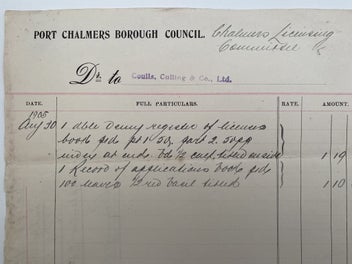 PORT CHALMERS BOROUGH COUNCIL. Chalmers Licensing
Committee
Dr. to Coulls, Culling & Co., Ltd.
DATE. FULL PARTICULARS. RATE. AMOUNT.
1905
Aug 30 1 dble Demy register of licences
book part 2. 50pp
index at ends 1 19
1 Record of applications book
100 leaves 1 10